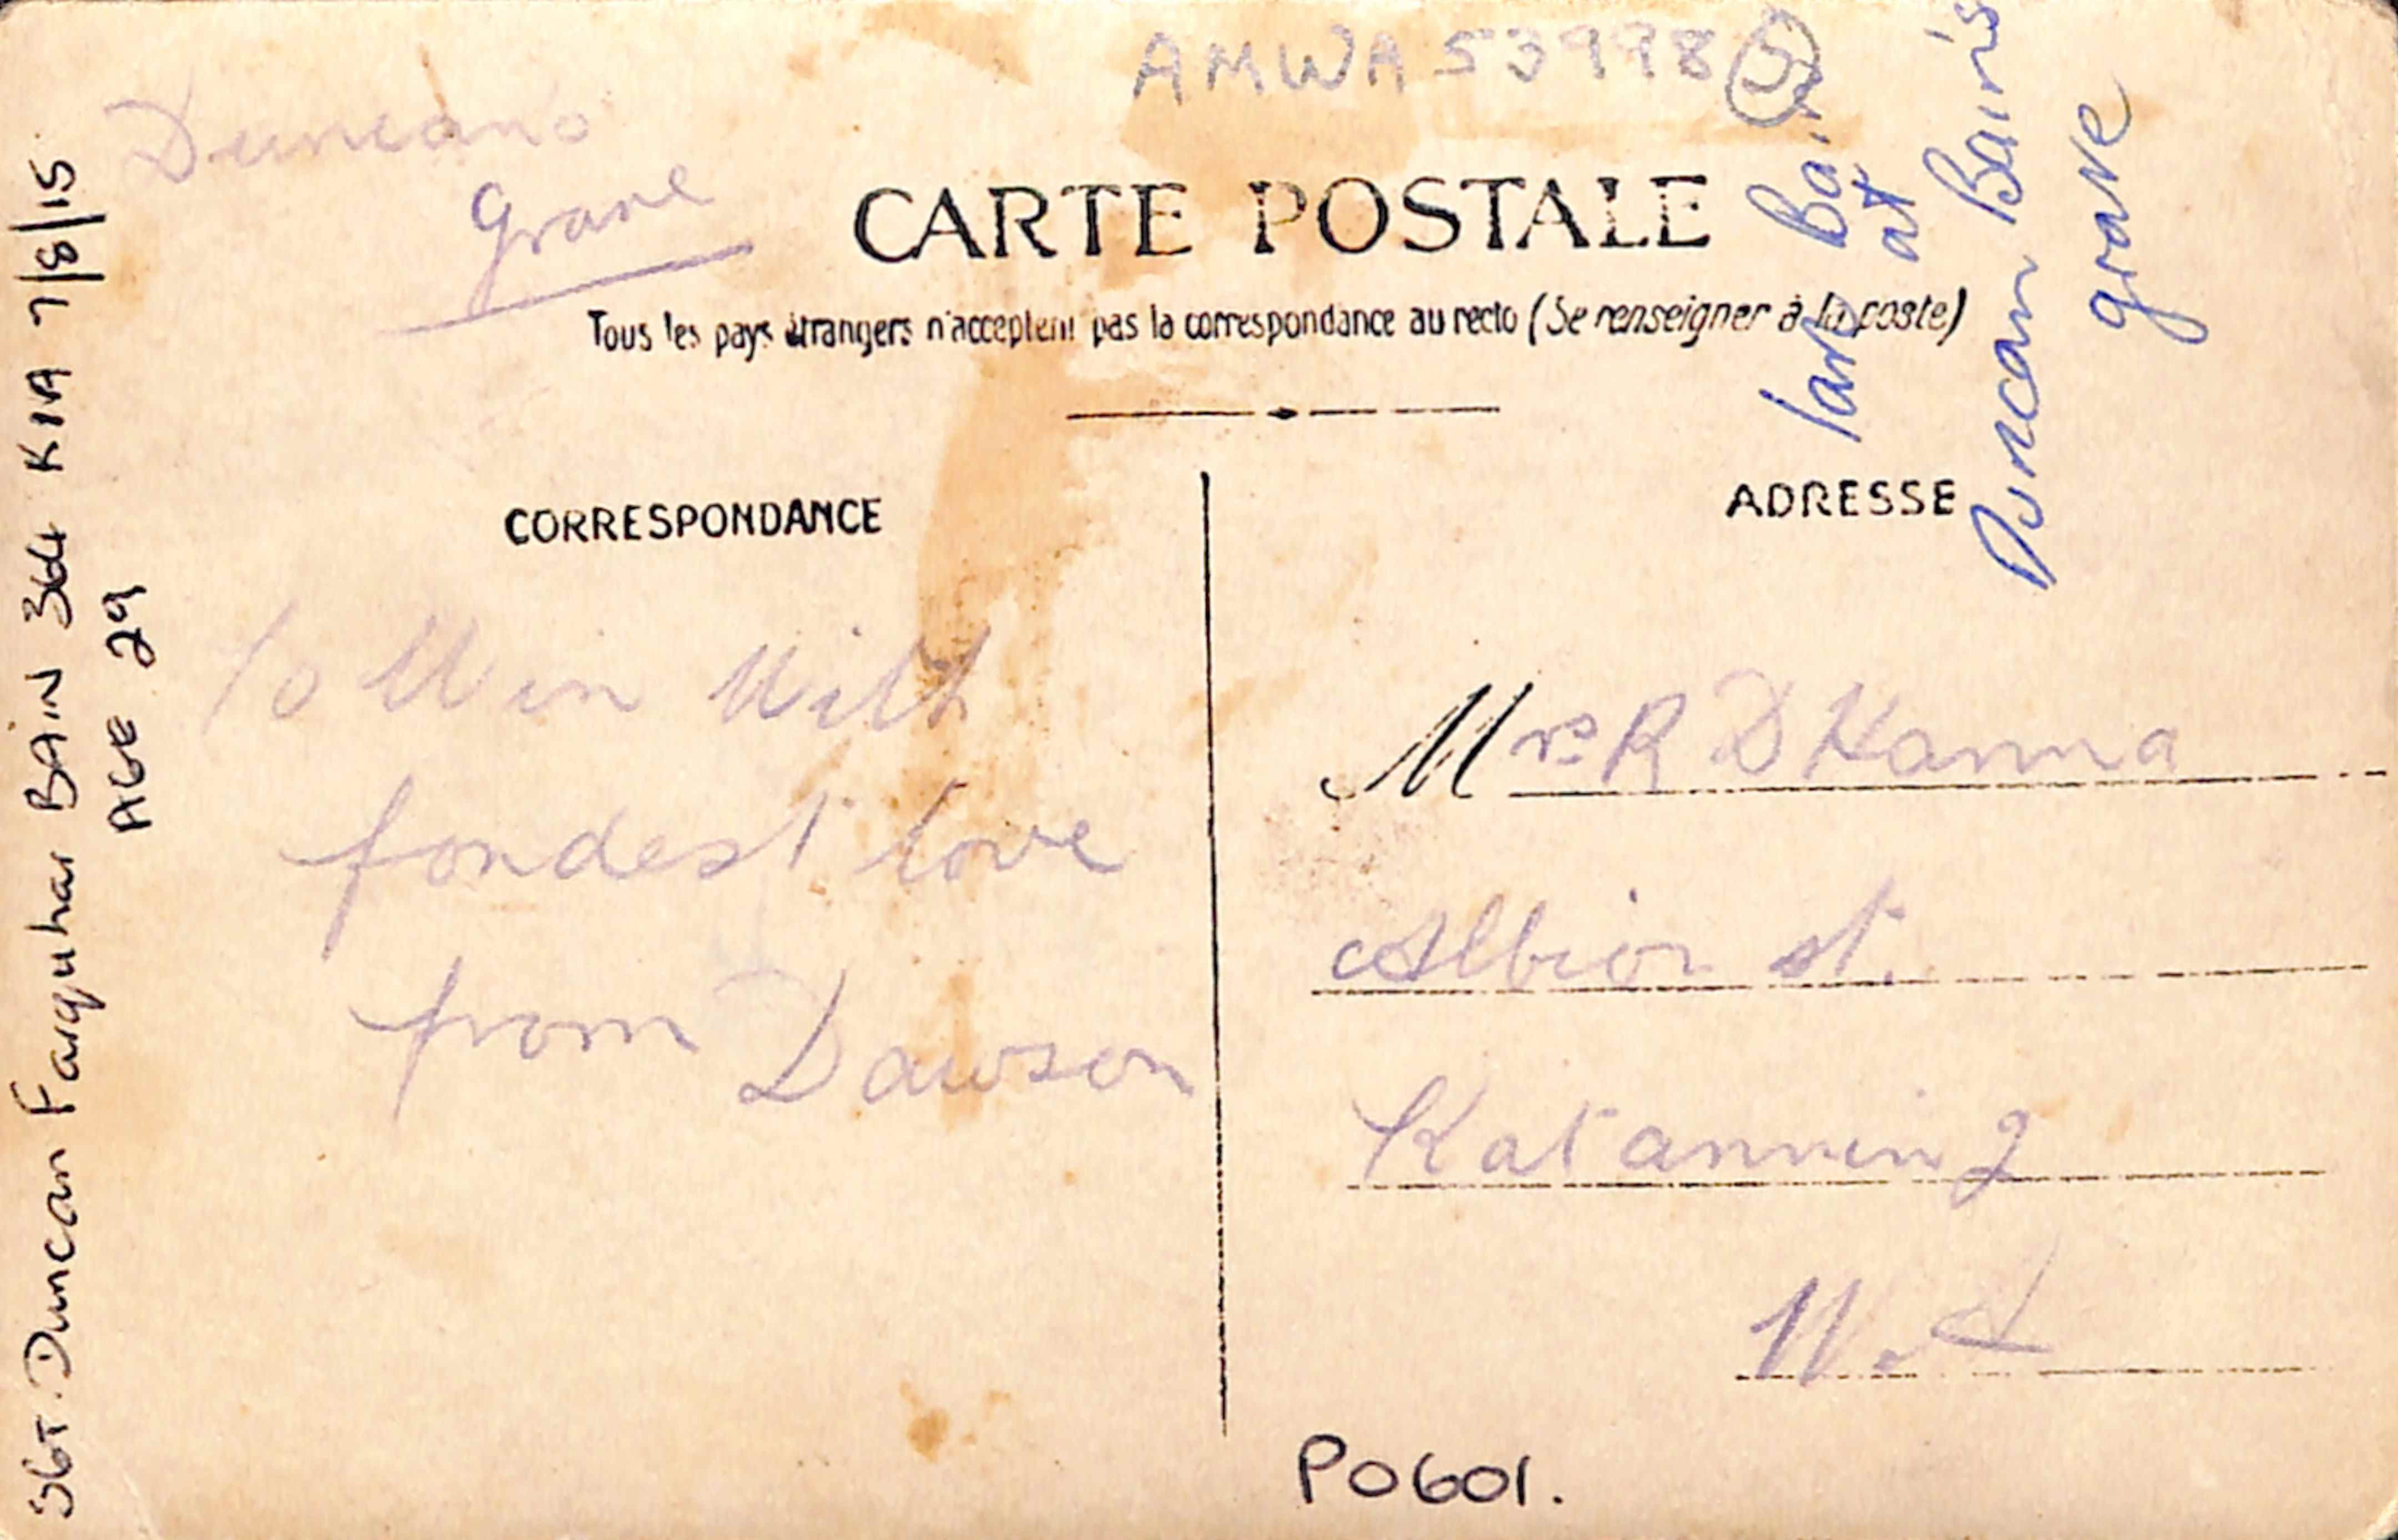 AMWA 53998 5
Duncans
Grave
CARTE POSTALE
Tous les pays étrangers n'acceptent pas la correspondance au recto (Se renseigner à la poste)
Bain
at
Duncan Bain's
grave
CORRESPONDANCE
ADRESSE
To Win With
fondest love
from Dawson
Mrs R D Hanna
Albion st.
Katanning
W. A
P0601.
SGT. Duncan Farquhar BAIN 364 KIA 7/8/15
AGE 29